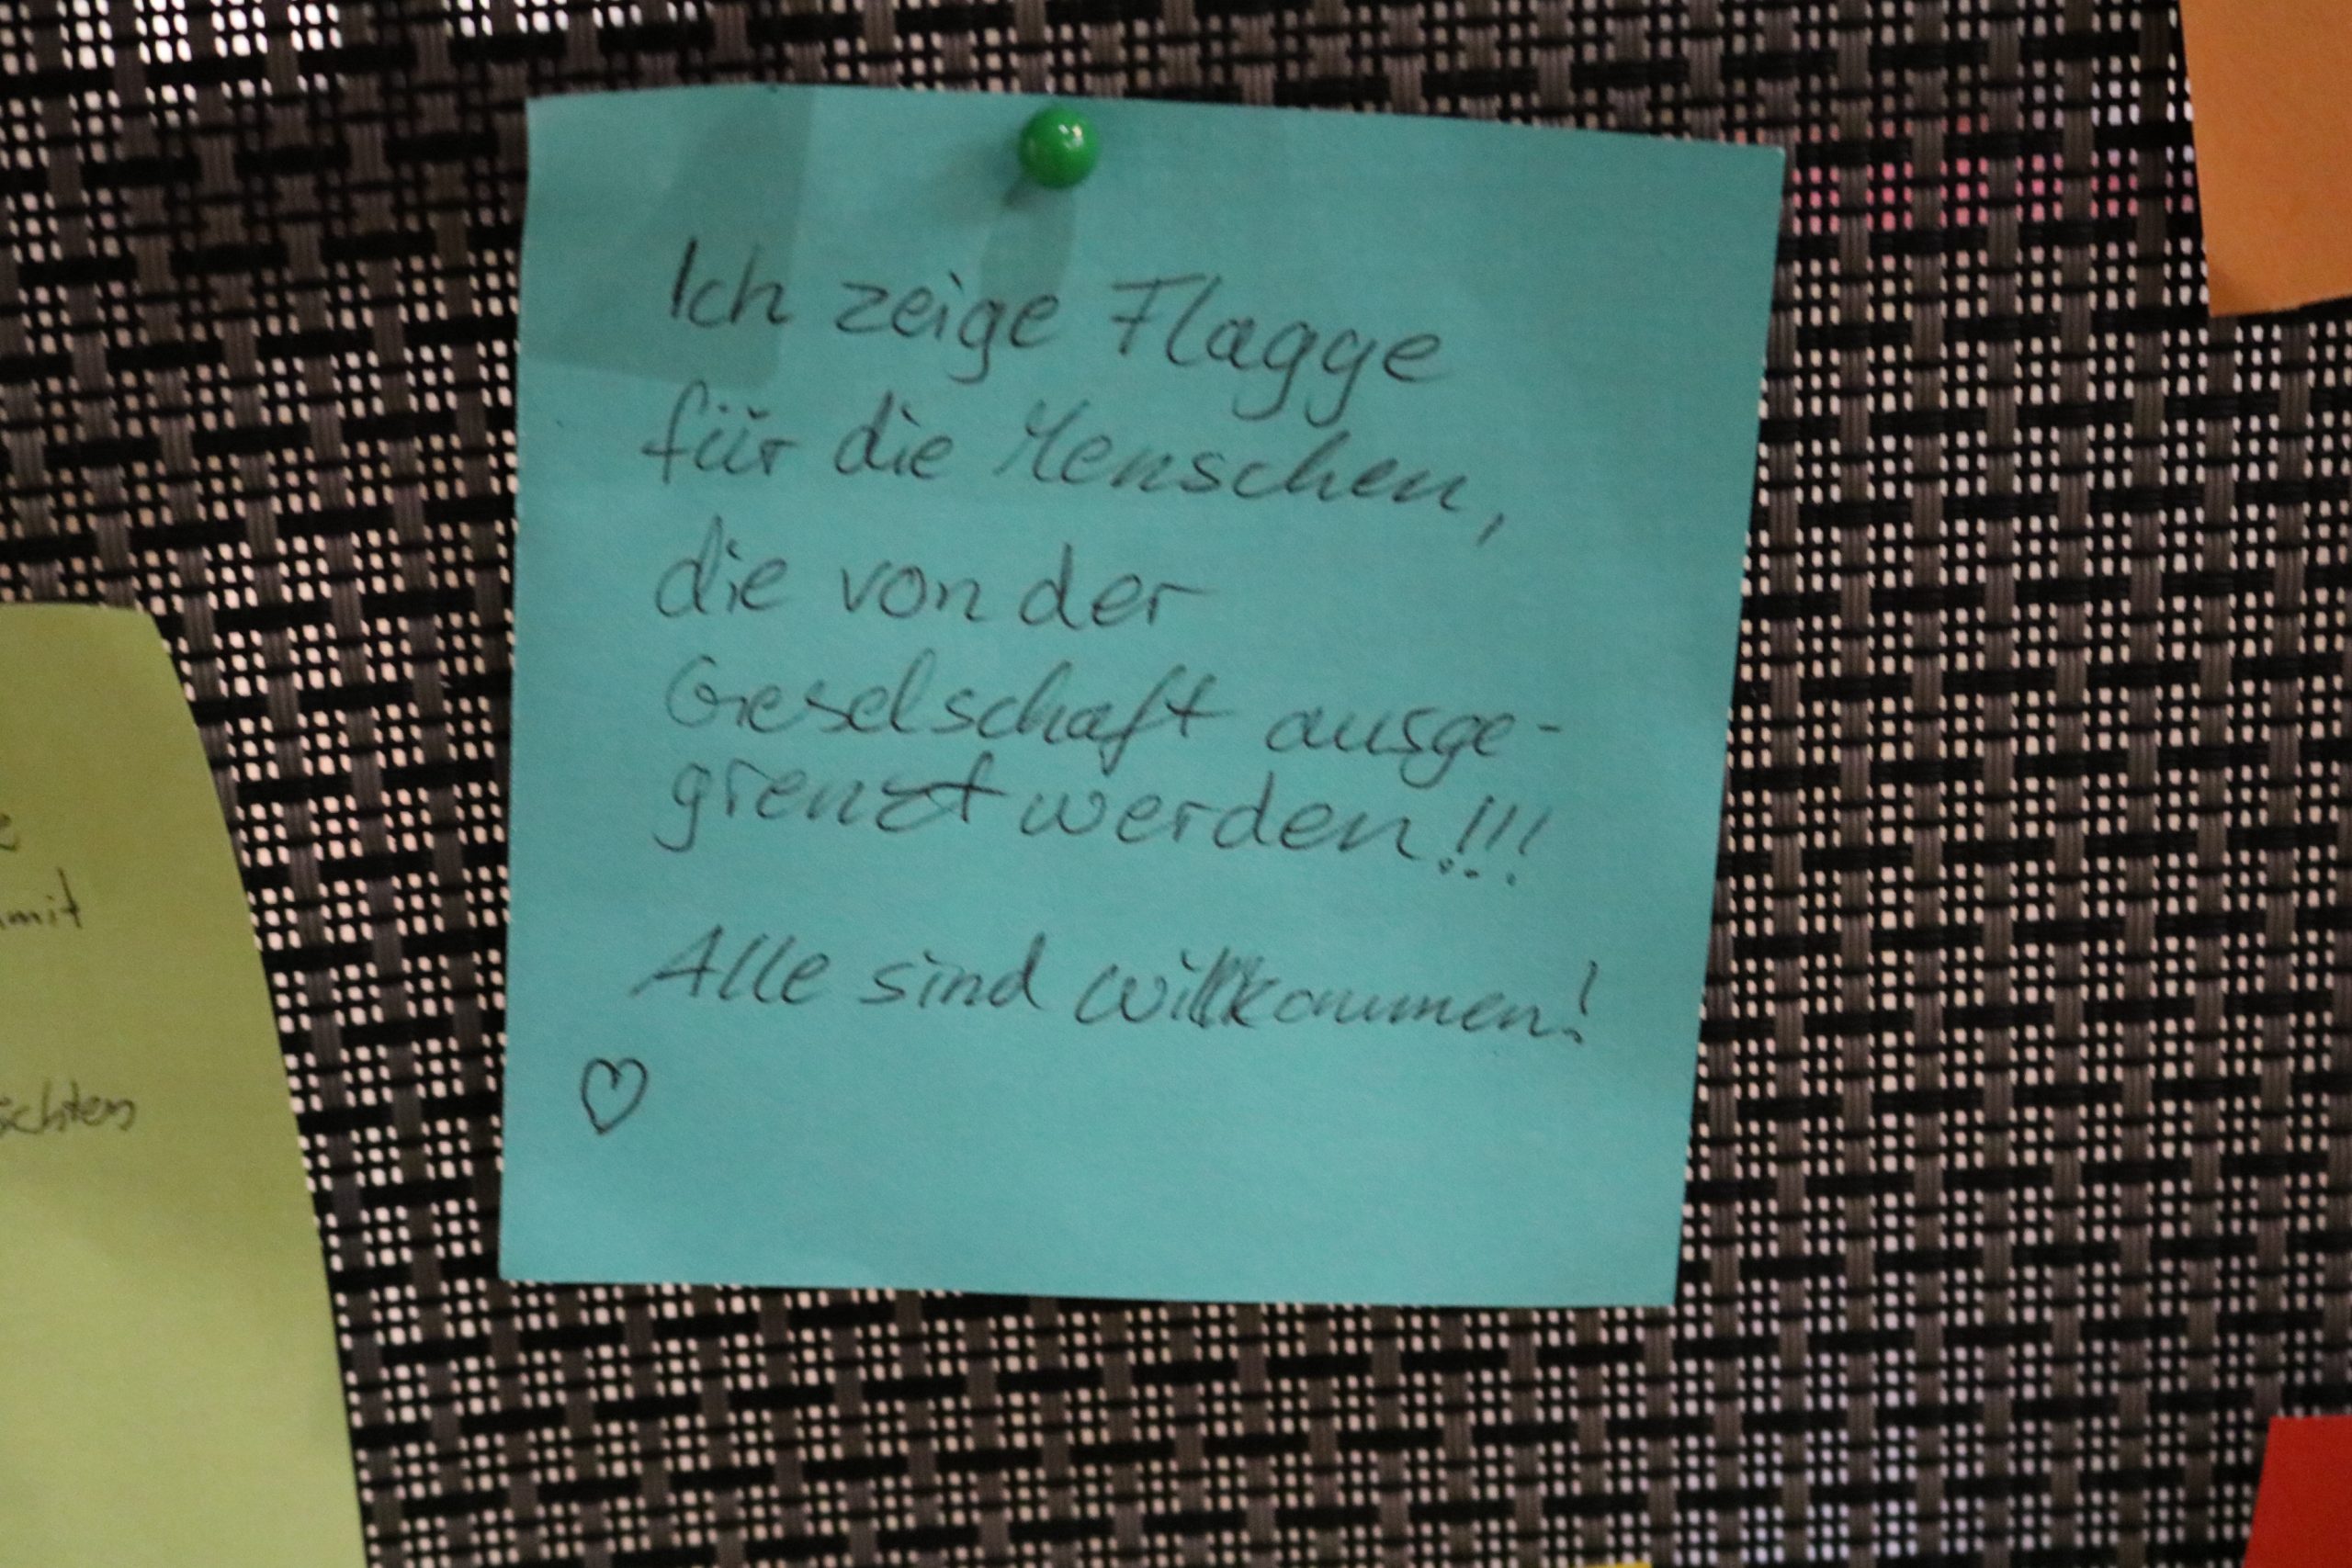 Ich zeige Flagge
für die Menschen,
die von der
Geselschaft ausge-
grenzt werden!!!
Alle sind willkommen!
♡
mit